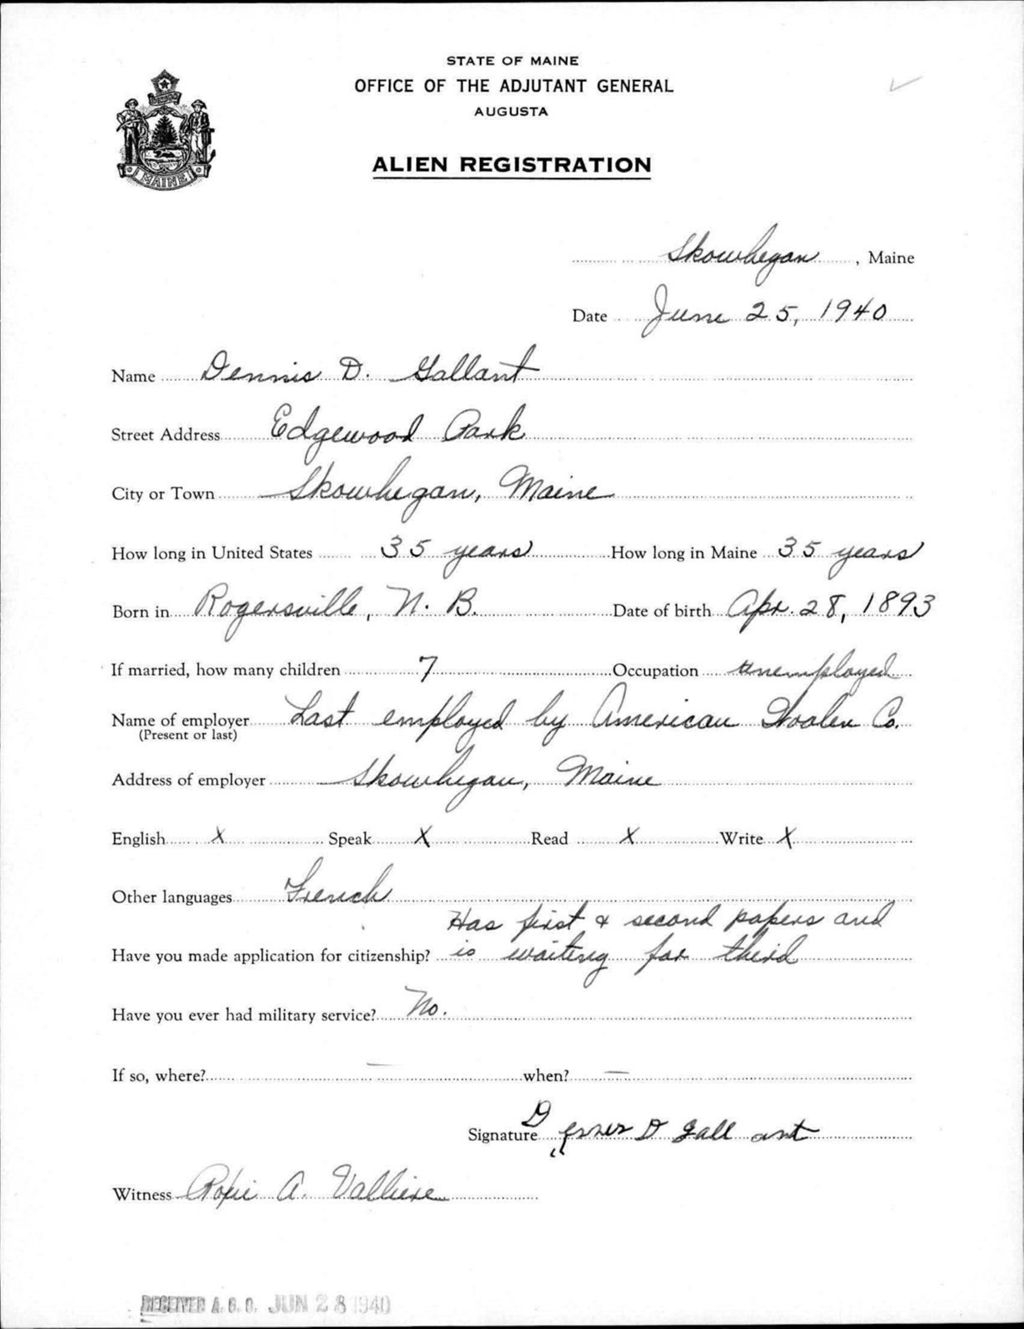 STATE OF MAINE
OFFICE OF THE ADJUTANT GENERAL
AUGUSTA
ALIEN REGISTRATION
MAINE
Skowhegan, Maine
Date June 25, 1940
Name Dennis D. Gallant
Street Address Edgewood Park
City or Town Skowhegan, Maine
How long in United States 35 years How long in Maine 35 years
Born in Rogersville, N. B. Date of birth Apr. 28, 1893
If married, how many children 7 Occupation unemployed
Name of employer Last employed by American Woolen Co.
(Present or last)
Address of employer Skowhegan, Maine
English X Speak X Read X Write X
Other languages French
Has first & second papers and
Have you made application for citizenship? is waiting for third
Have you ever had military service? No.
If so, where? — when? —
Signature D Gallant
Witness A. Valliere
RECEIVED A. G. O. JUN 28 1940